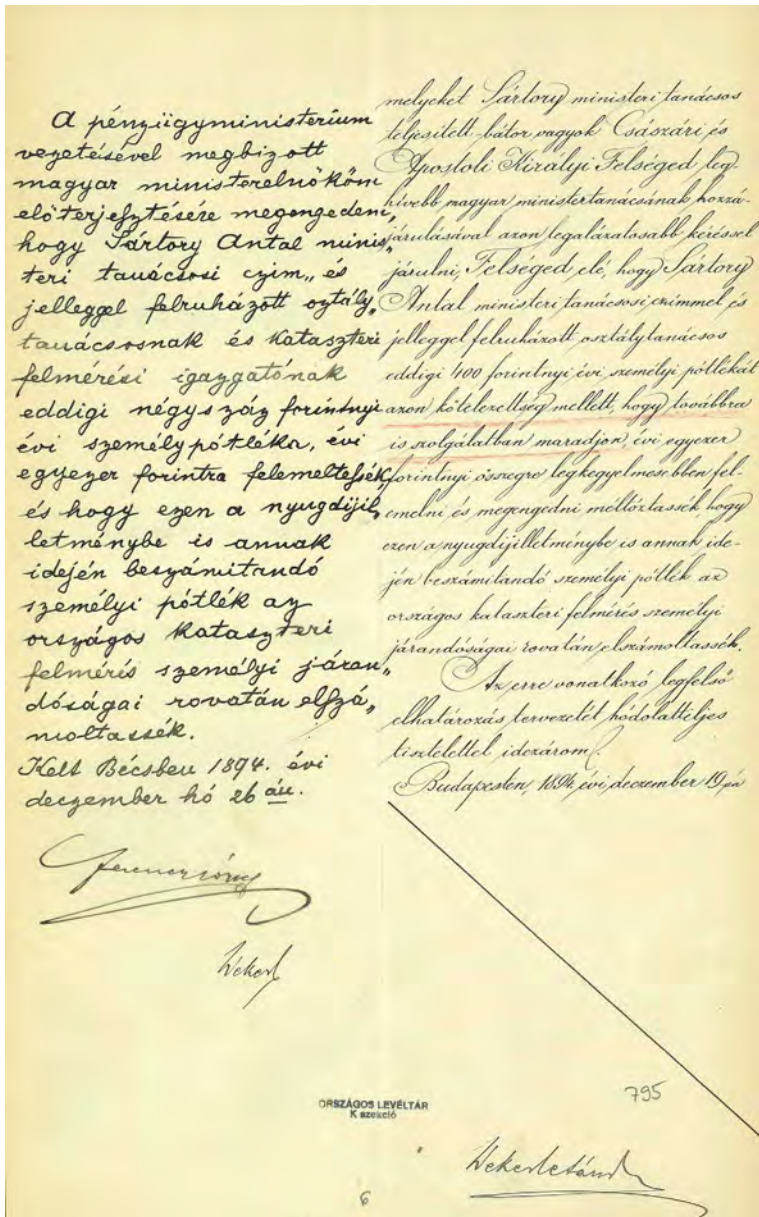 A pénzügyministerium
vezetésével megbizott
magyar ministerelnököm
előterjesztésére megengedem,
hogy Sártory Antal minis„
teri tanácsosi czim„ és
jelleggel felruházott osztály„
tanácsosnak és kataszteri
felmérési igazgatónak
eddigi négyszáz forintnyi
évi személypótléka, évi
egyezer forintra felemeltessék
és hogy ezen a nyugdijil„
letménybe is annak
idején beszámitandó
személyi pótlék az
országos kataszteri
felmérés személyi járan„
dóságai rovatán elszá„
moltassék.
Kelt Bécsben 1894. évi
deczember hó 26 án.
Ferencz József
Wekerle
melyeket Sártory ministeri tanácsos
teljesitett – bátor vagyok Császári és
Apostoli Királyi Felséged leg-
hivebb magyar ministertanácsának hozzá-
járulásával azon legalázatosabb kéréssel
járulni, Felséged elé, hogy Sártory
Antal ministeri tanácsosi czimmel és
jelleggel felruházott osztálytanácsos
eddigi 400 forintnyi évi személyi pótlékát
azon kötelezettség mellett, hogy továbbra
is szolgálatban maradjon, évi egyezer
forintnyi összegre legkegyelmesebben fel-
emelni és megengedni méltóztassék, hogy
ezen a nyugdijilletménybe is annak ide-
jén beszámitandó személyi pótlék az
országos kataszteri felmérés személyi
járandóságai rovatán elszámoltassék.
Az erre vonatkozó legfelső
elhatározás tervezetét hódolatteljes
tisztelettel idezárom.
Budapesten, 1894. évi deczember 19.én
795
ORSZÁGOS LEVÉLTÁR
K szekció
Wekerle Sándor
6